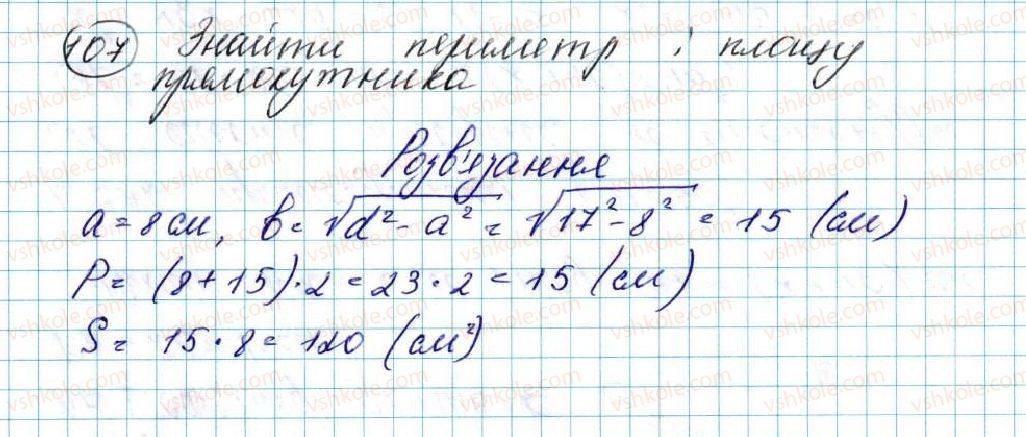 107 Знайти периметр і площу
прямокутника
Розв'язання
a = 8 см, b = √d² - a² = √17² - 8² = 15 (см)
P = (8 + 15) · 2 = 23 · 2 = 15 (см)
S = 15 · 8 = 120 (см²)